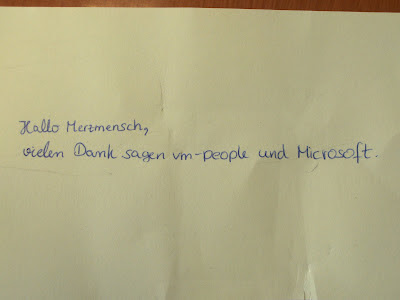 Hallo Merzmensch,
vielen Dank sagen vm-people und Microsoft.